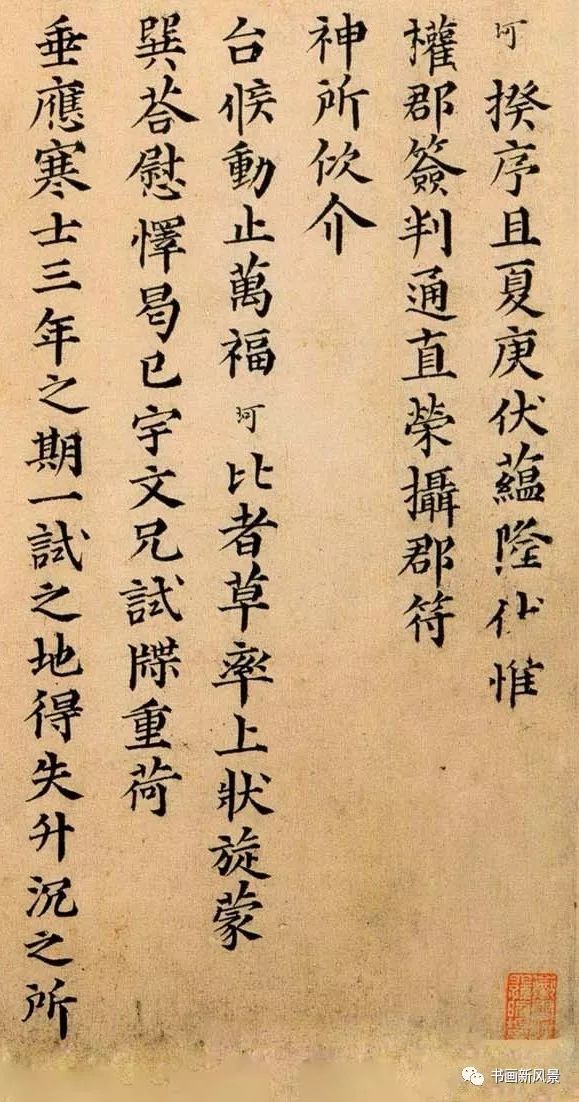 珂 揆序且夏庚伏蘊隆伏惟
權郡簽判通直榮攝郡符
神所佽介
台候動止萬福 珂 比者草率上狀旋蒙
巽荅慰懌曷已宇文兄試牒重荷
垂應寒士三年之期一試之地得失升沉之所
书画新风景